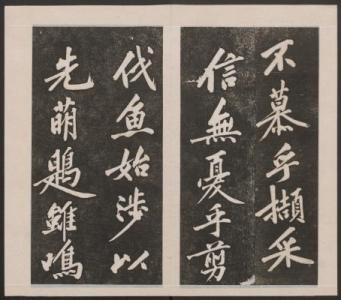 不慕乎擷采
信無憂乎剪
伐魚始涉以
先萌鶗雖鳴